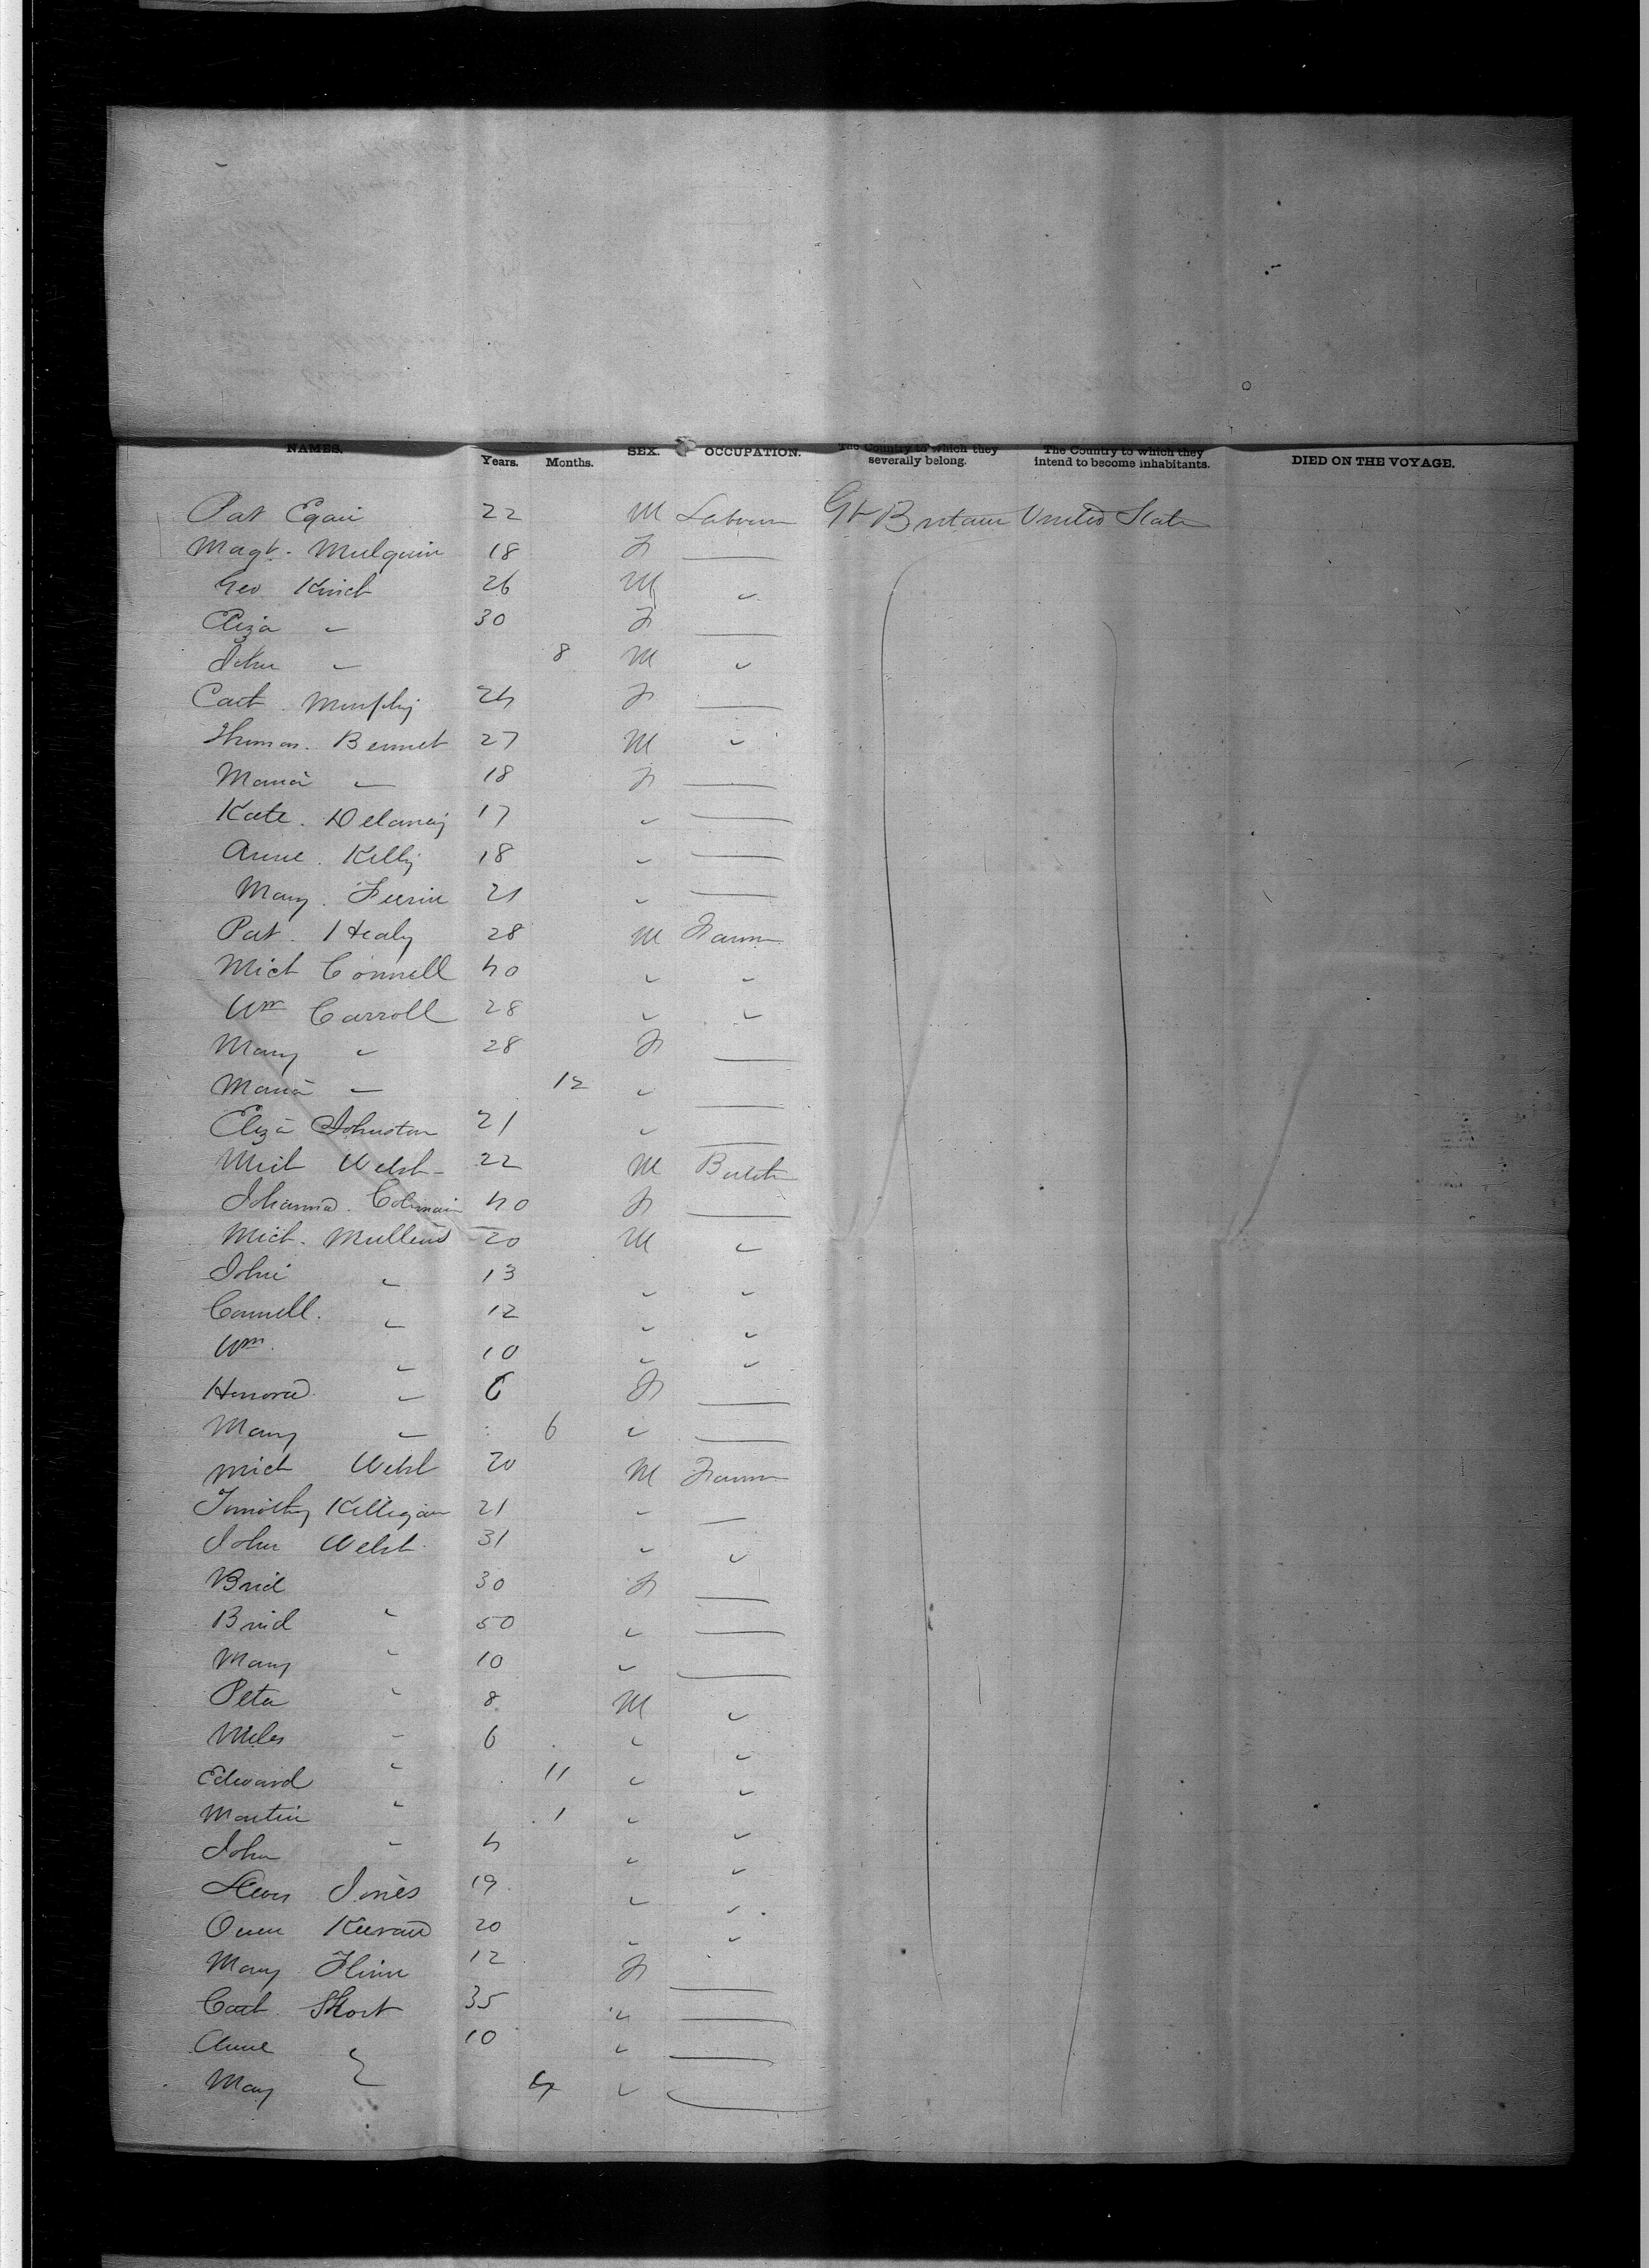 NAMES. Years. Months. SEX. OCCUPATION. The Country to which they severally belong. The Country to which they intend to become inhabitants. DIED ON THE VOYAGE.
Pat Egan 22 M Labourer Gt Britain United States
Magt. Mulquin 18 F —
Geo Kinch 26 M "
Eliza " 30 F —
John " 8 M "
Cath. Murphy 24 F —
Thomas. Bennet 27 M "
Maria " 18 F —
Kate. Delaney 17 " —
Anne. Kelly 18 " —
Mary. 21 " —
Pat. Healy 28 M Farmer
Mich Connell 40 " "
Wm Carroll 28 " "
Mary " 28 F —
Maria " 12 " —
Eliza Johnston 21 " —
Mich Welsh 22 M
Johanna. Colman 40 F —
Mich. Mullens 20 M "
John " 13 " "
Connell. " 12 " "
Wm. " 10 " "
Honora " 6 F —
Mary " 6 " —
Mich Welsh 20 M Farmer
Timothy Killigan 21 " —
John Welsh 31 " "
Brid " 30 F —
Brid " 50 " —
Mary " 10 " —
Peter " 8 M "
Miles " 6 " "
Edward " 11 " "
Martin " 1 " "
John " 4 " "
Jones 19 " "
Owen Keevan 20 " "
Mary Flinn 12 F —
Cath. Short 35 " —
Anne } 10 " —
Mary } 4 " —